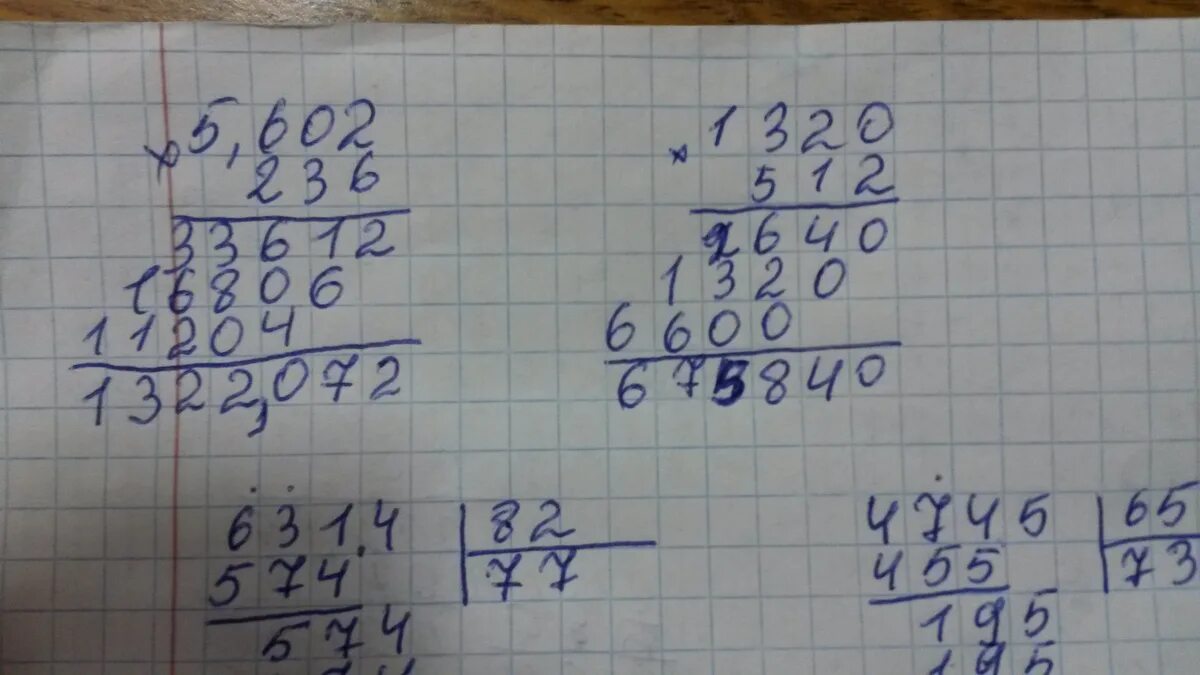 5,602
× 236
33612
16806
11204
1322,072
1320
× 512
2640
1320
6600
675840
631,4 | 82
574 | 77
574
4745 | 65
455 | 73
195
195